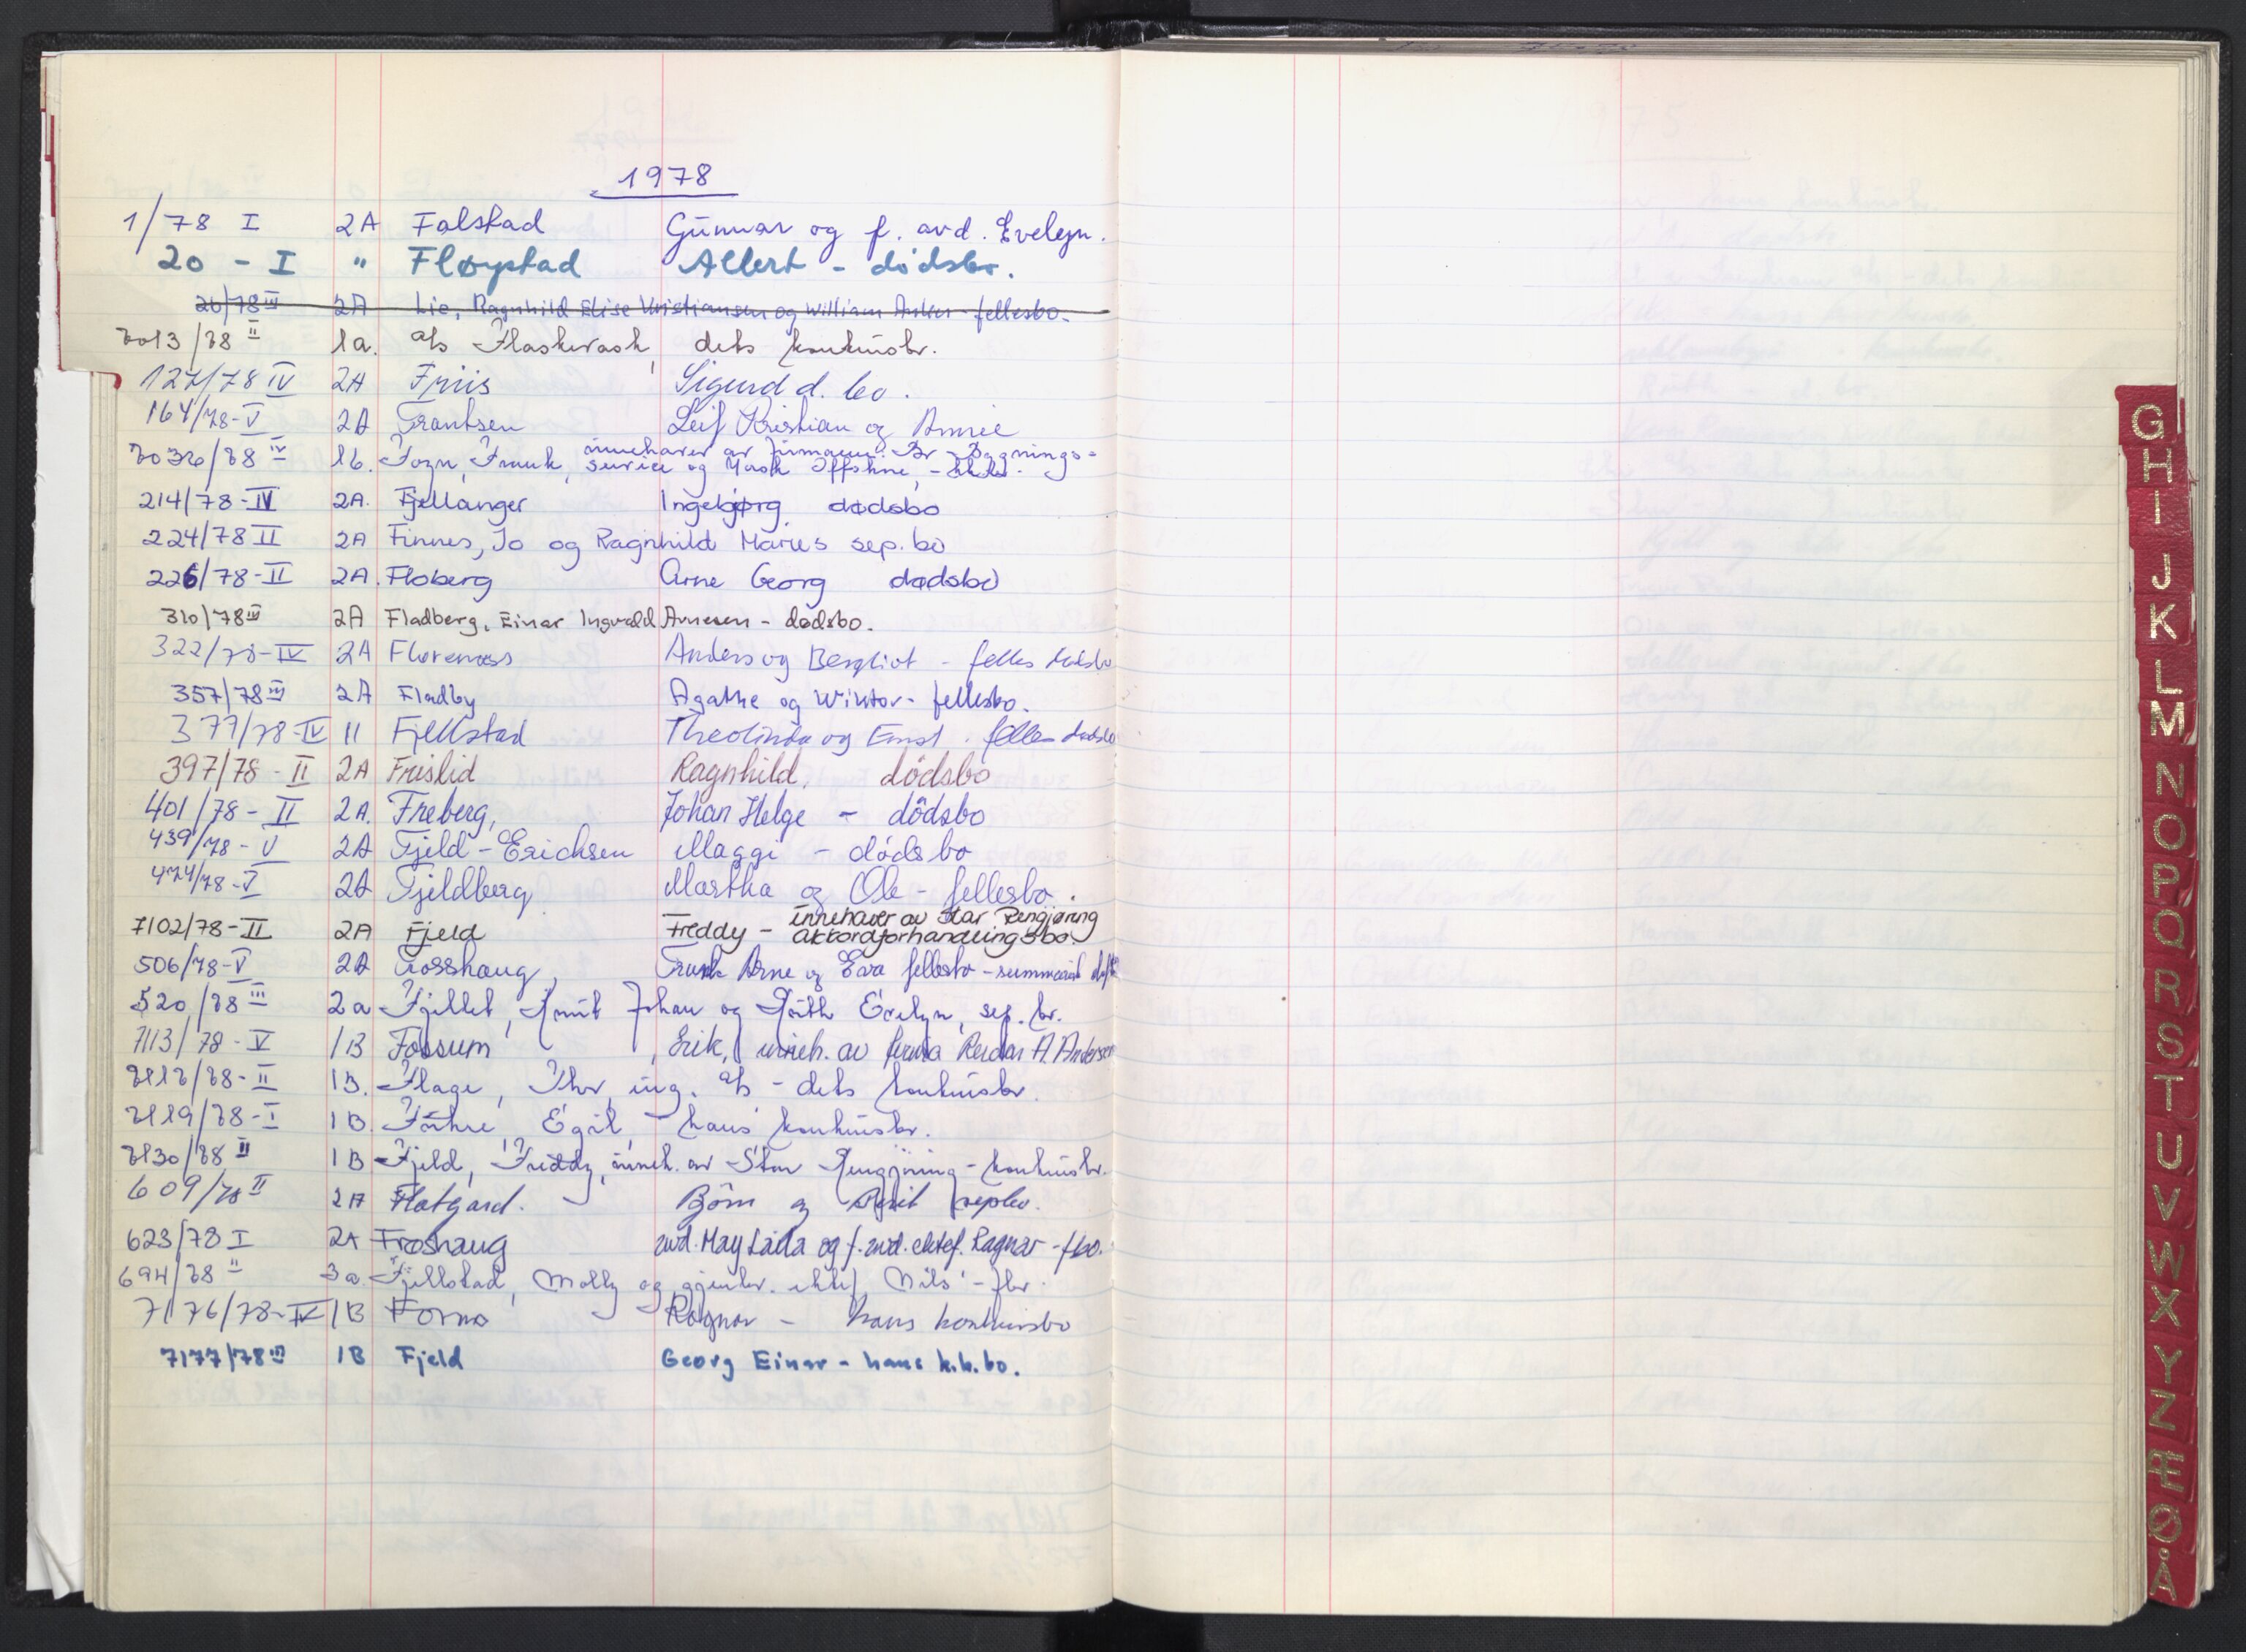 1978
1/78 I 2A Falstad Gunnar og f. avd. Evelyn.
20 - I " Fløystad Albert - dødsbo.
26/78 III 2A Lie, Ragnhild Elise Kristiansen og William Anker - fellesbo.
7013/78 II 1a. a/s Flaskevask, dets konkursbo.
127/78 IV 2A Friis Sigurd d. bo.
164/78-V 2A Frantsen Leif Kristian og Annie
7036/78 IV 1b. Fozn, Frank, innehaver av firmaene: Br Bygnings-
service og Mosk Offshore, -
214/78-IV 2A. Fjellanger Ingebjørg dødsbo
224/78 II 2A Finnes, Jo og Ragnhild Maries sep. bo
226/78-II 2A. Floberg Arne Georg dødsbo
310/78 III 2A Fladberg, Einar Ingvald Arnesen - dødsbo.
322/78-IV 2A Florenæss Anders og Bergliot - felles dødsbo
357/78 III 2A Fladby Agathe og Wiktor - fellesbo.
377/78-IV 11 Fjellstad Theolinda og Ernst. felles dødsbo
397/78 - II 2A Frislid Ragnhild, dödsbo
401/78 - II 2A. Freberg, Johan Helge - dödsbo
439/78 - V 2A Fjeld-Erichsen Maggi - dödsbo
474/78-V 2A Fjeldberg Martha og Ole - fellesbo.
7102/78-II 2A Fjeld Freddy - innehaver av Star Rengjøring
akkordforhandlingsbo.
506/78-V 2A Frosshaug, Frank Arne og Eva fellesbo - summarisk
520/78 III 2a Fjellet, Knut Johan og Ruth Evelyn, sep. bo.
7113/78 - V 1B Fossum, Erik, inneh. av firma Reidar A. Andersen
7117/78-II 1B. Flage, Thor, ing. a/s - dets konkursbo.
7119/78-I 1B. Føhre, Egil, hans konkursbo.
7130/78 II 1B Fjeld, Freddy, inneh. av Star Rengjöring - konkursbo.
609/78 II 2A Flatgard. Björn og Berit sepbo.
623/78 I 2A Froshaug avd. May Laila og f. avd. ektef. Ragnar - f.bo.
694/78 II 3a. Fjellstad, Molly og gjenlev. ektef. Nils - fbo.
7176/78-IV 1B Formo Ragnar - hans konkursbo
7177/78 III 1B Fjeld Georg Einar - hans k.k.bo.
G
H
I
J
K
L
M
N
O
P
Q
R
S
T
U
V
W
X
Y
Z
Æ
Ø
Å